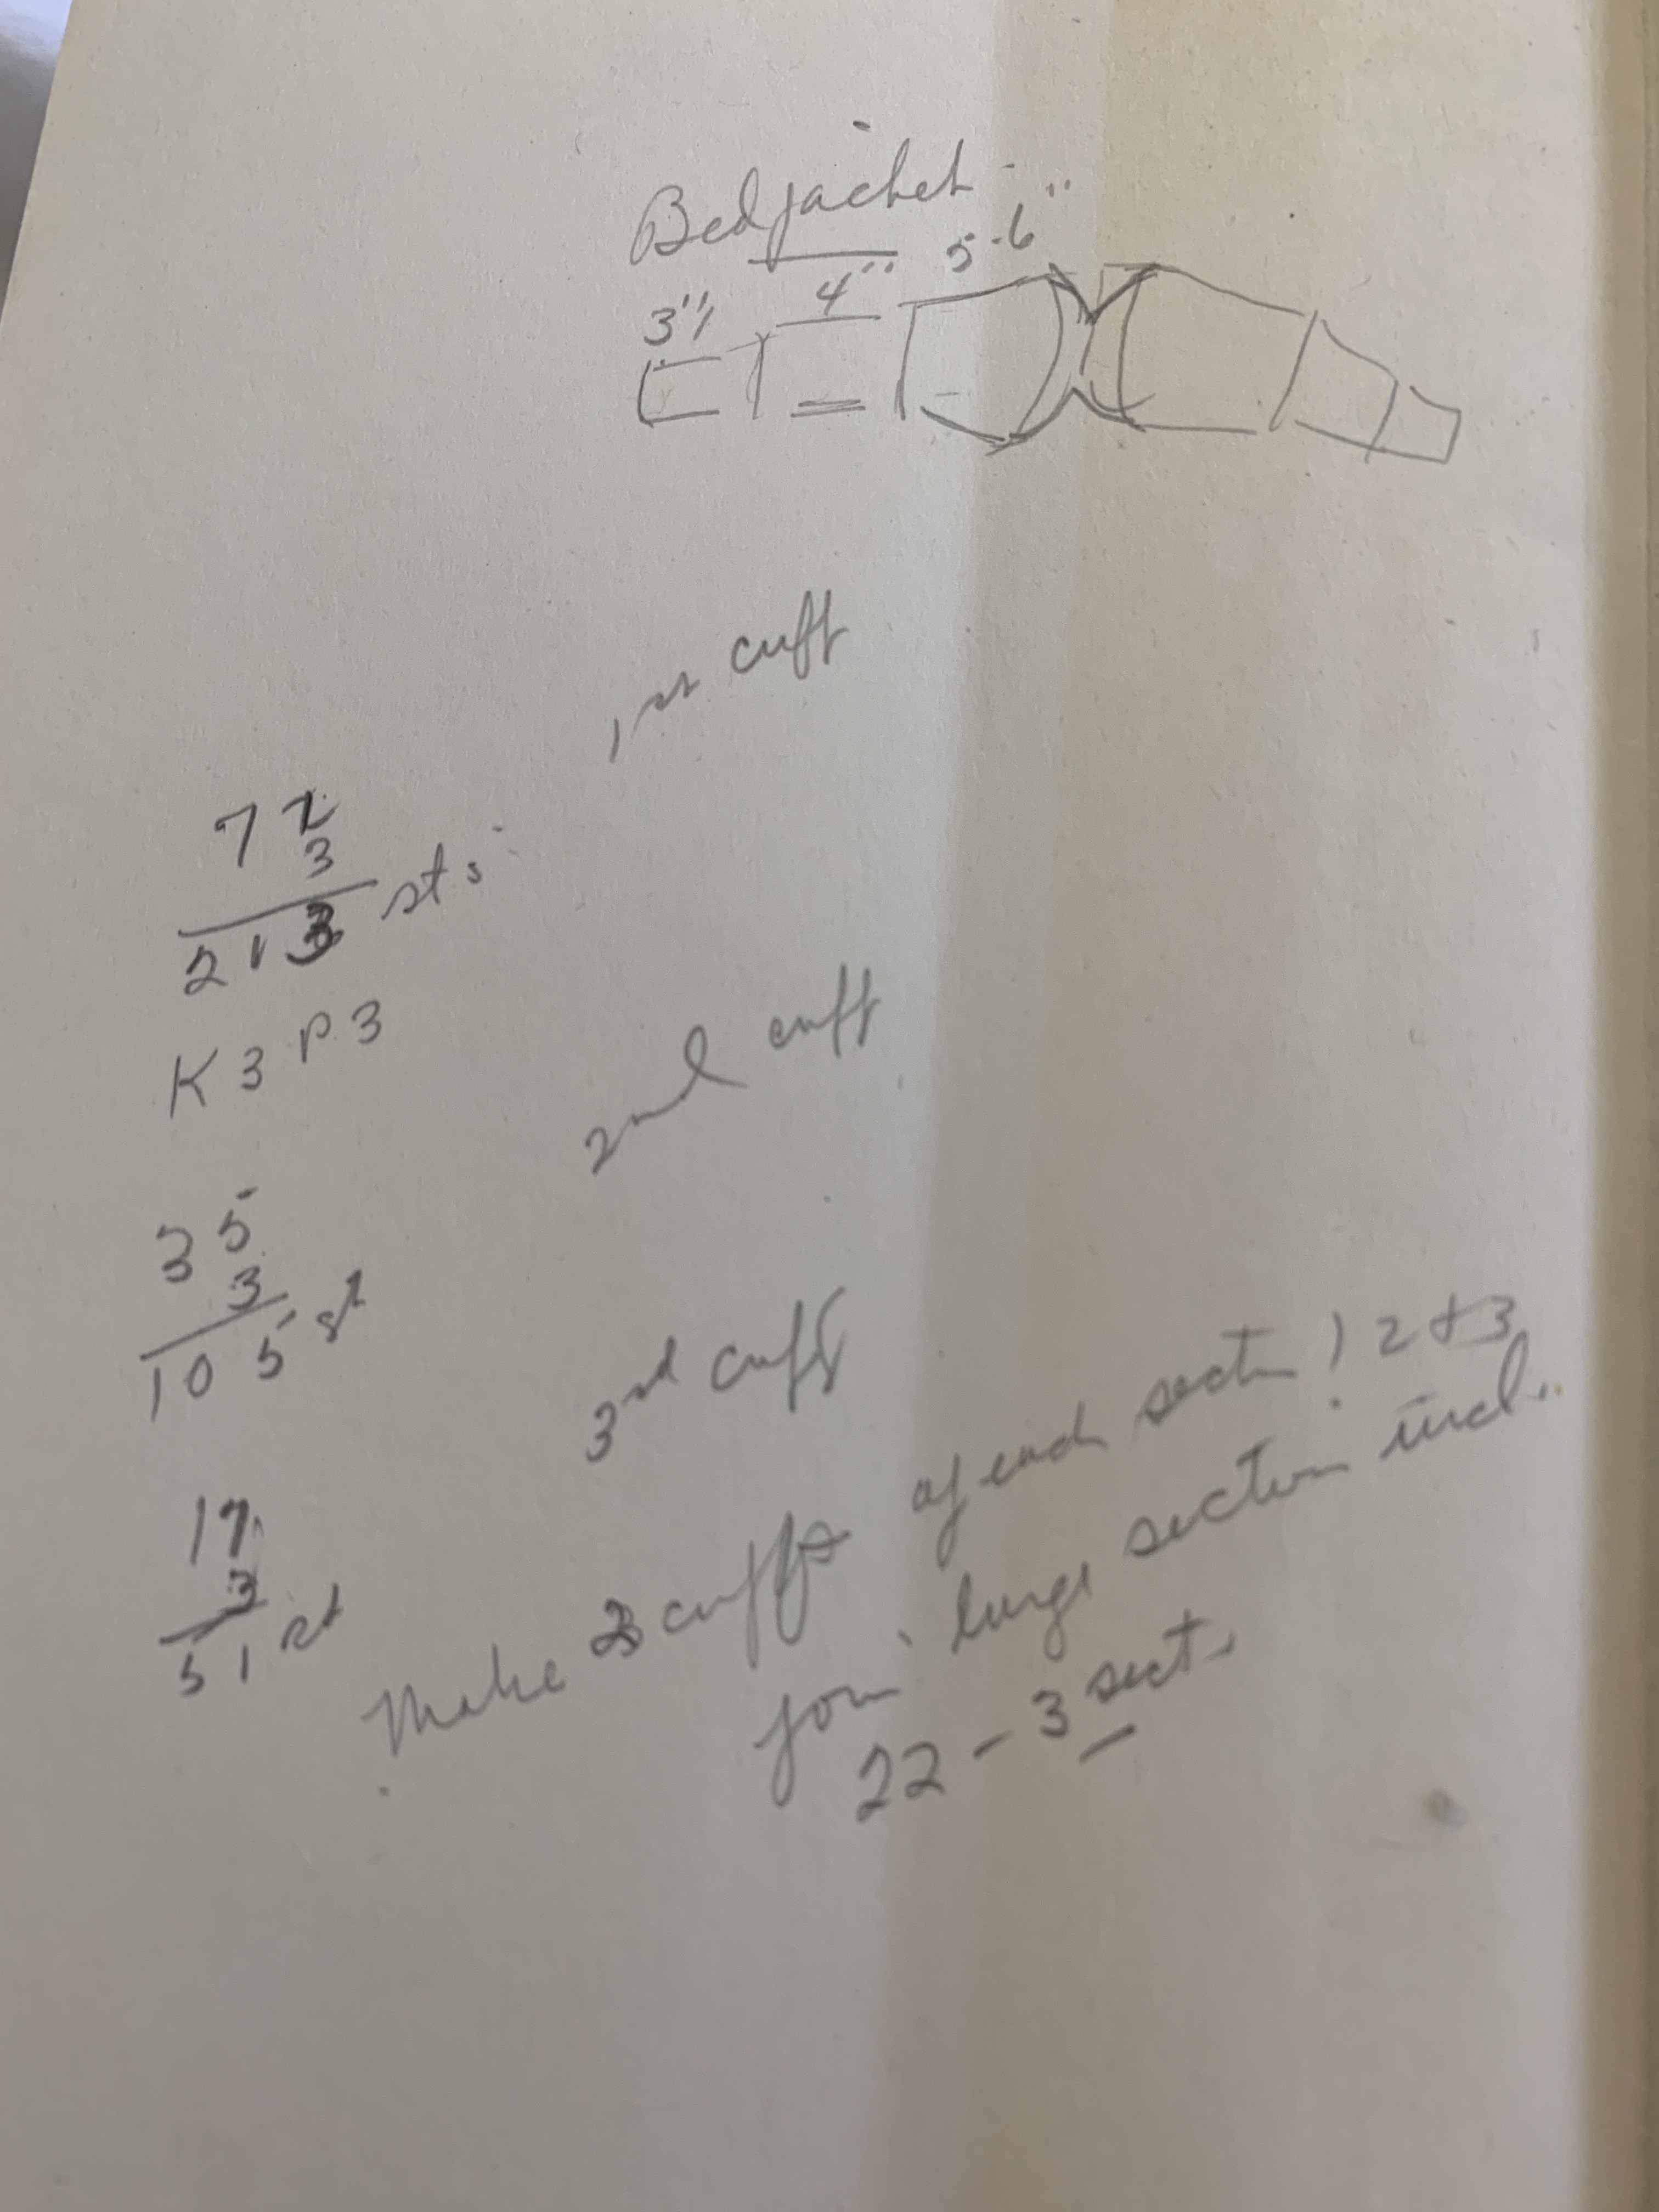 Bedjacket
3" 4" 5-6"
1st cuff
72
3
213 sts
K3 P3
2nd cuff
35
3
105 st
3rd cuff
17
3
51 st
Make 2 cuffs of each sectn 1 2 + 3
join large section incl.
22 - 3 sect.